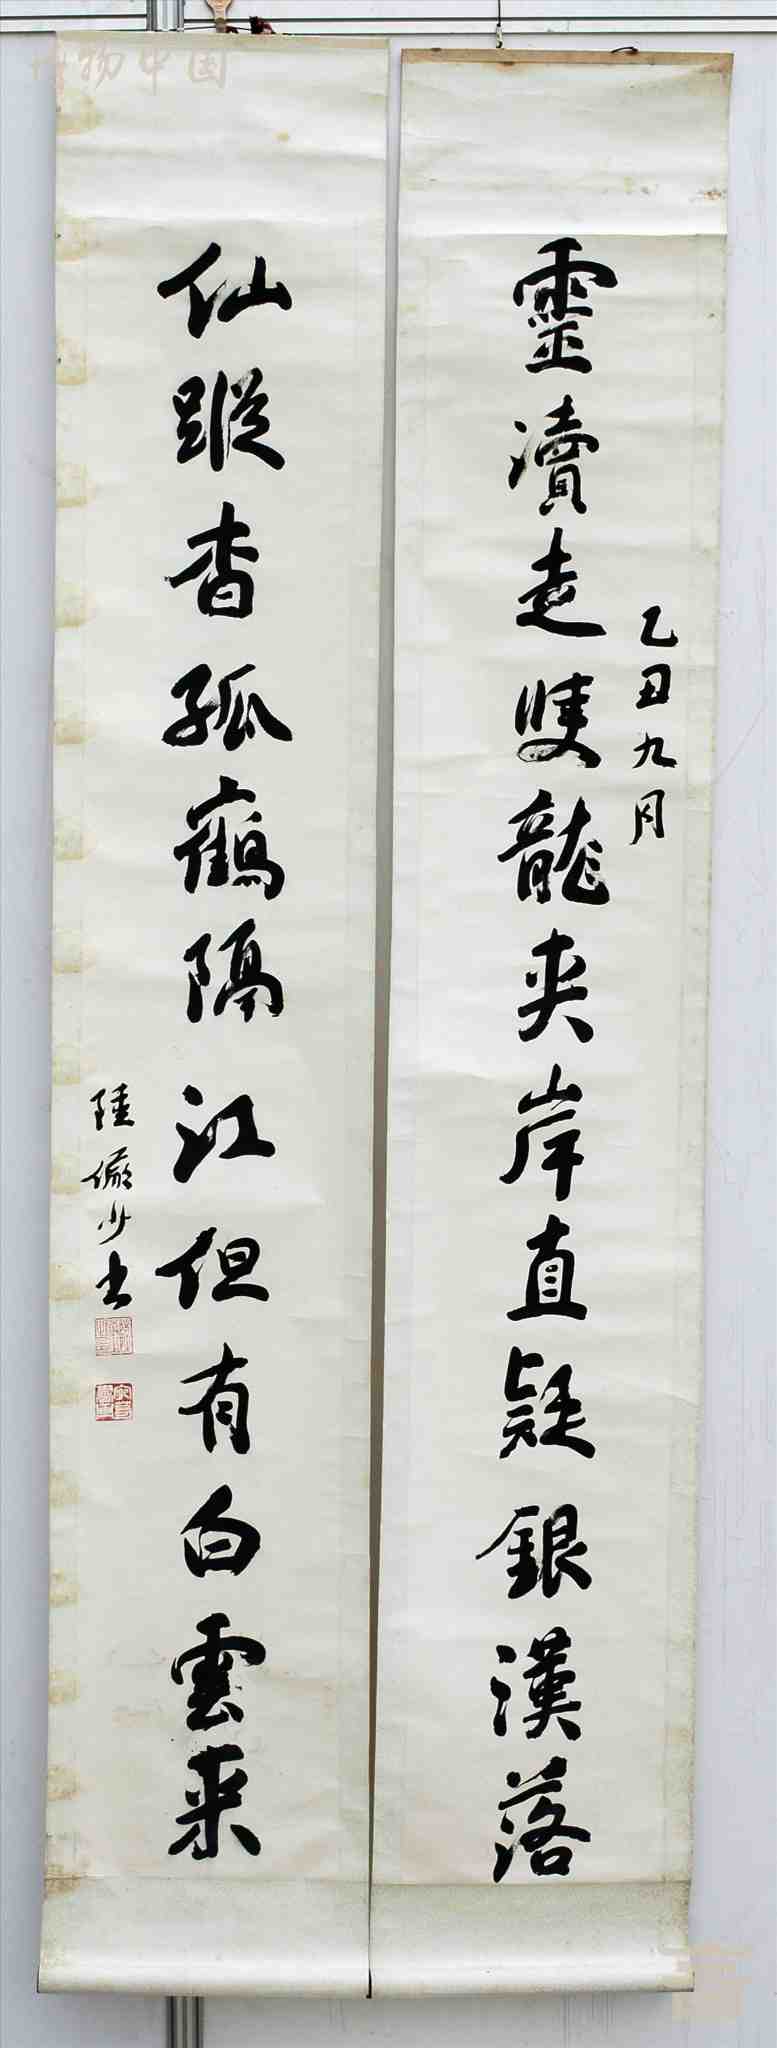 乙丑九月
靈瀆走雙龍夾岸直疑銀漢落
仙蹤杳孤鶴隔江但有白雲來
陸儼少書
博物中国